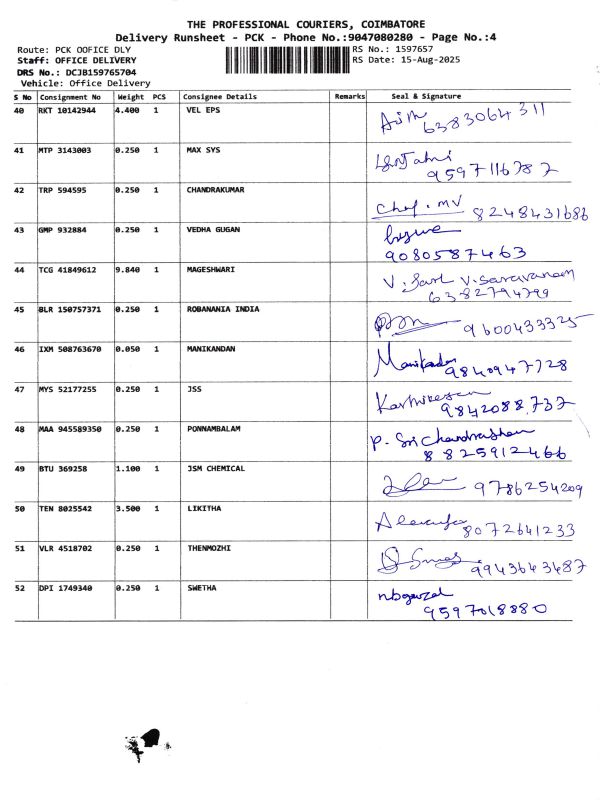 THE PROFESSIONAL COURIERS, COIMBATORE
Delivery Runsheet - PCK - Phone No.:9047080280 - Page No.:4
Route: PCK OOFICE DLY RS No.: 1597657
Staff: OFFICE DELIVERY RS Date: 15-Aug-2025
DRS No.: DCJB159765704
Vehicle: Office Delivery
S No Consignment No Weight PCS Consignee Details Remarks Seal & Signature
40 RKT 10142944 4.400 1 VEL EPS
6383064311
41 MTP 3143003 0.250 1 MAX SYS
9597116787
42 TRP 594595 0.250 1 CHANDRAKUMAR
8248431686
43 GMP 932884 0.250 1 VEDHA GUGAN
9080587463
44 TCG 41849612 9.840 1 MAGESHWARI V. Saravanam
6382794799
45 BLR 150757371 0.250 1 ROBANANIA INDIA
9600433325
46 IXM 508763670 0.050 1 MANIKANDAN Manikandan
9840947728
47 MYS 52177255 0.250 1 JSS Karthikeyan
9842088737
48 MAA 945589350 0.250 1 PONNAMBALAM P. Sri Chandrasekhan
8825912466
49 BTU 369258 1.100 1 JSM CHEMICAL
9786254209
50 TEN 8025542 3.500 1 LIKITHA
8072641233
51 VLR 4518702 0.250 1 THENMOZHI
9943643487
52 DPI 1749340 0.250 1 SWETHA
9597018880